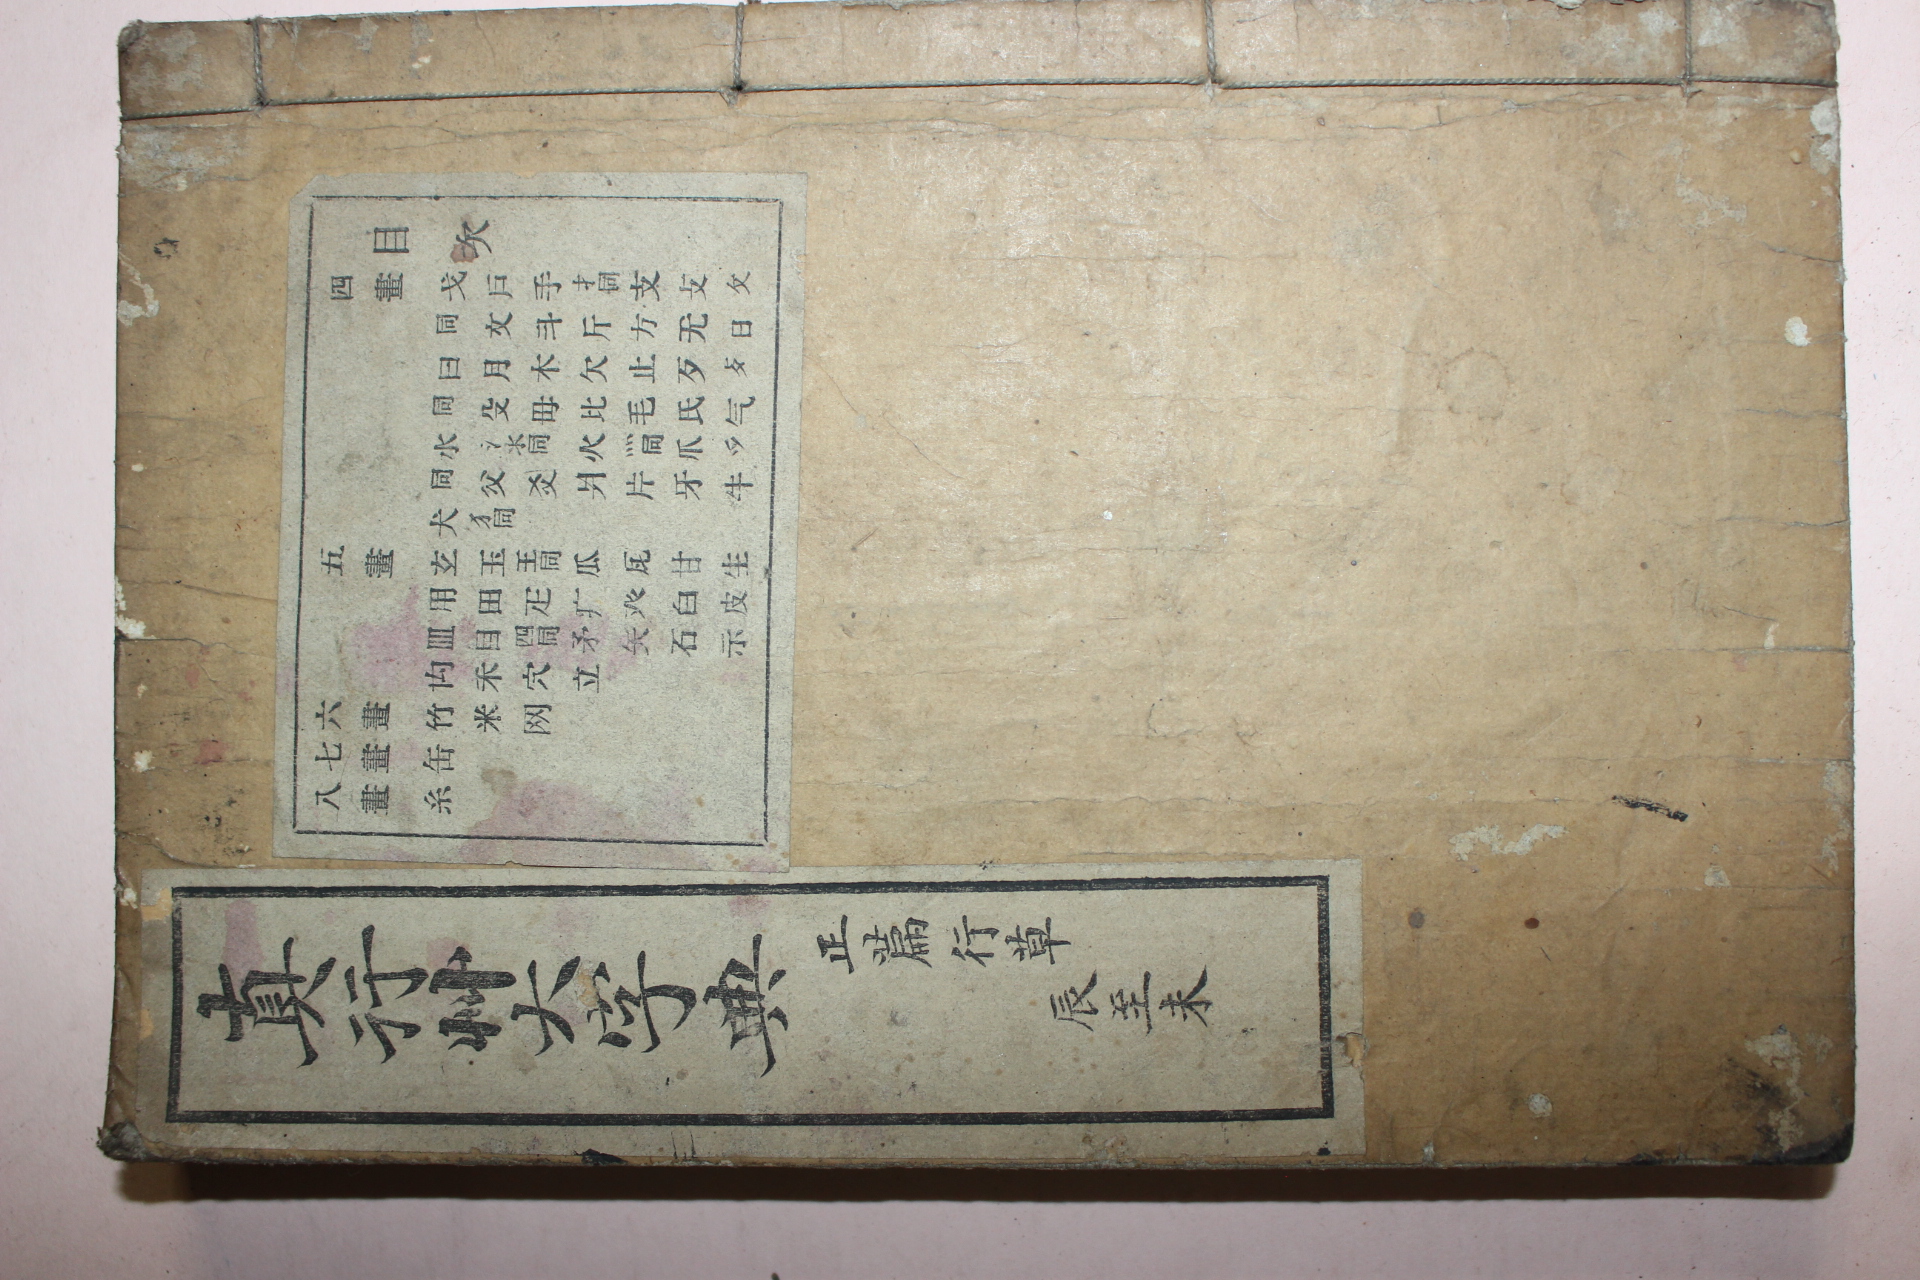 目次
四畫 戈戶手扌同支攴攵
同文斗斤方无日
曰月木欠止歹歺
同殳毋比毛氏气
水氵氺同火灬同爪爫
同父爻爿片牙牛
犬犭同
五畫 玄玉王同瓜瓦甘生
用田疋疒癶白皮
皿目罒同矛矢石示
禸禾穴立
六畫 竹米网
七畫 缶
八畫 糸
真行艸大字典
正篇行草
辰至未